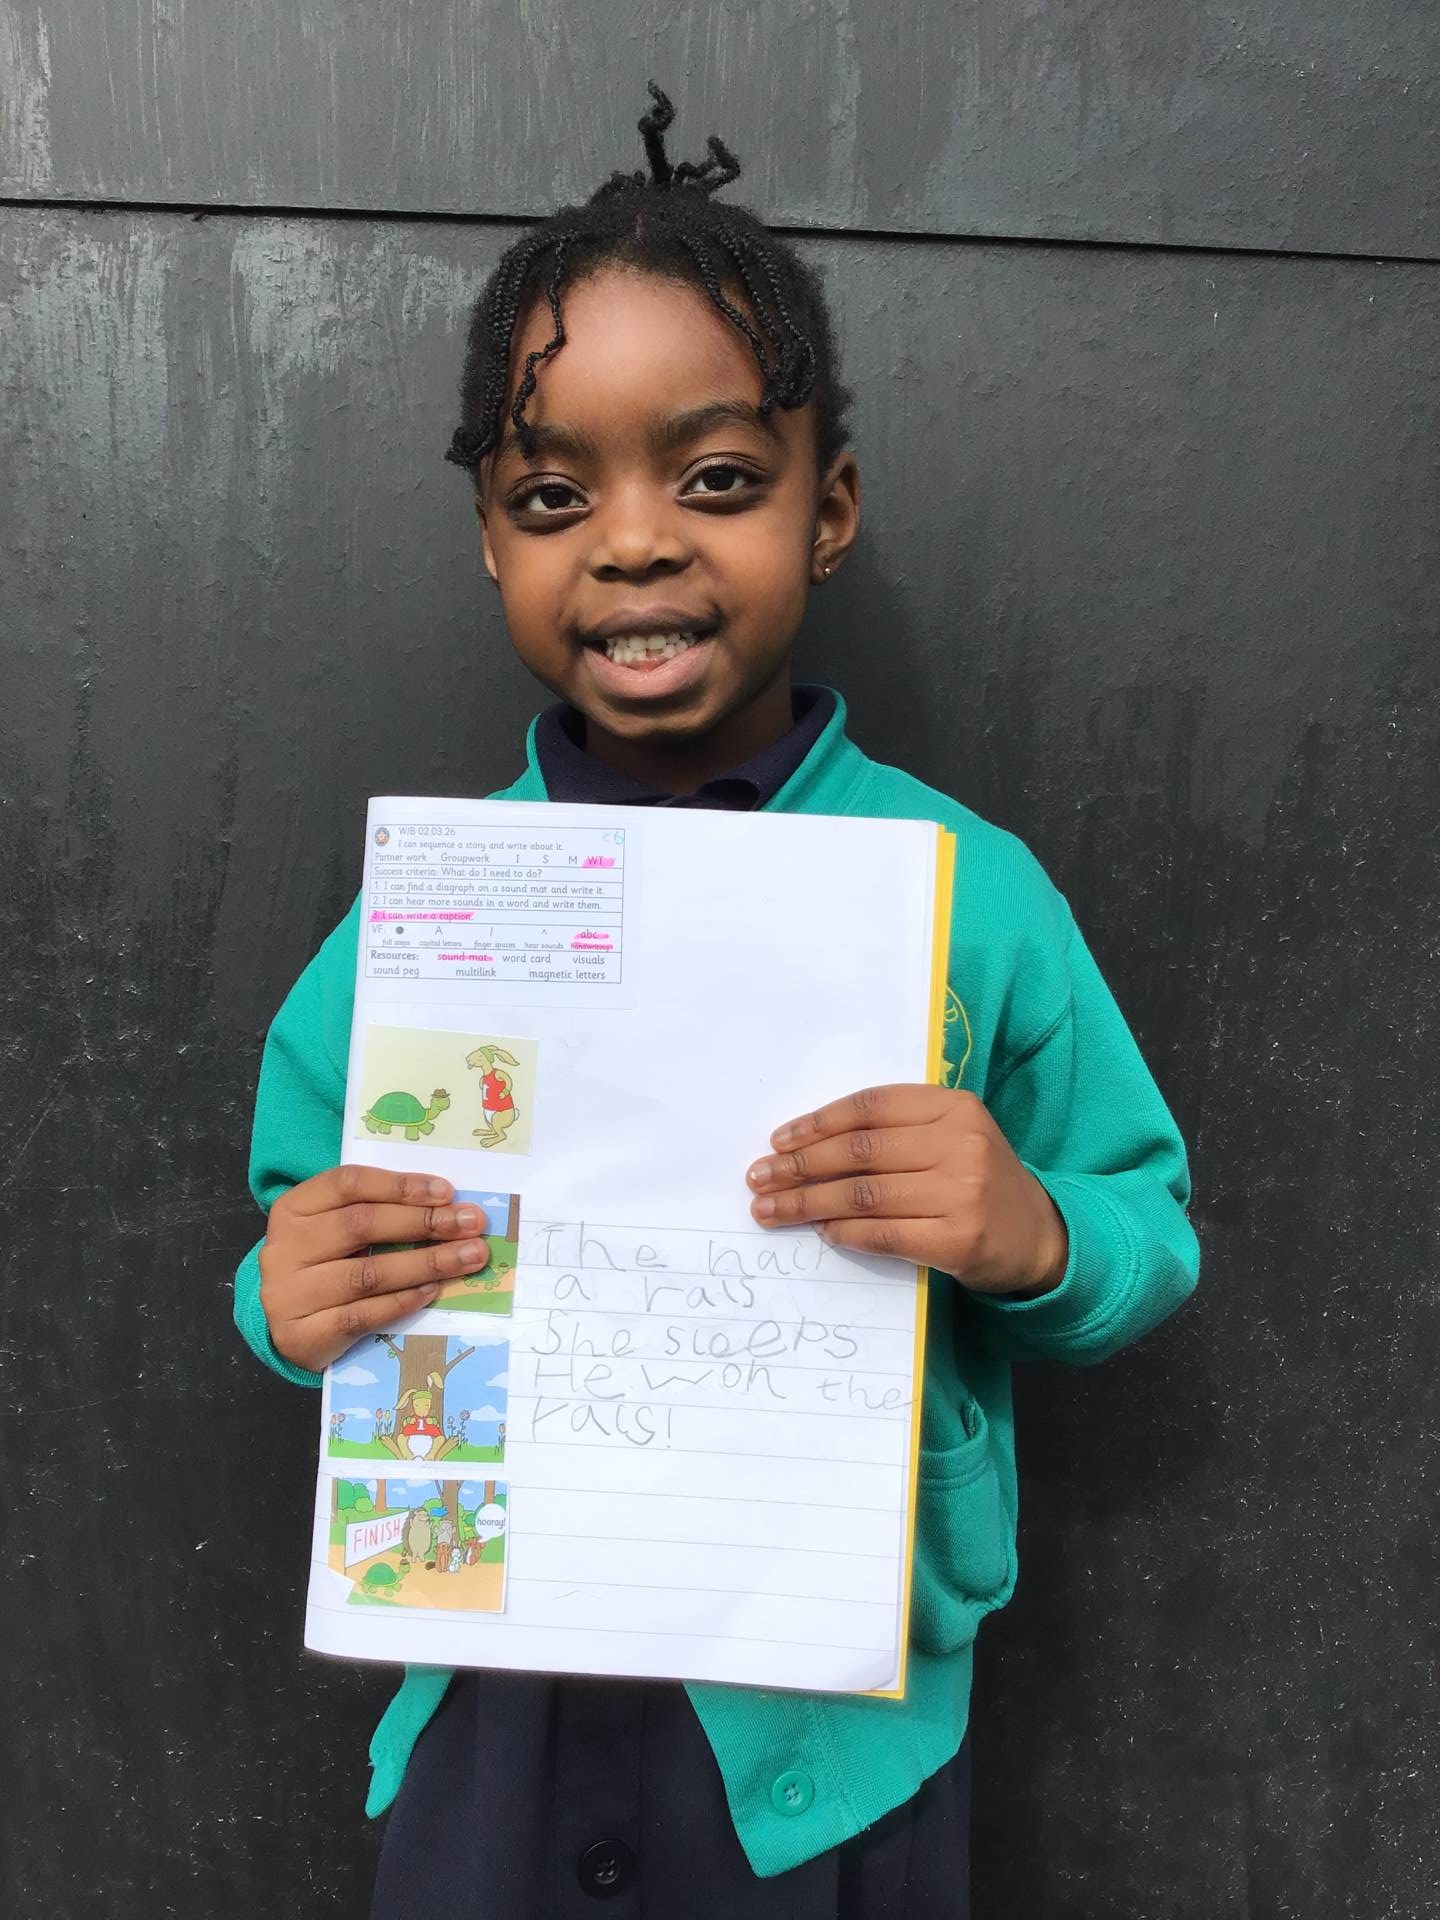 WIB 02.03.26
I can sequence a story and write about it.
Partner work Groupwork I S M WT
Success criteria: What do I need to do?
1. I can find a diagraph on a sound mat and write it.
2. I can hear more sounds in a word and write them.
3. I can write a caption.
VF: A / ^ abc
full stops capital letters finger spaces hear sounds handwriting
Resources: sound mat word card visuals
sound peg multilink magnetic letters
The hair
a rais
She sleeps
He won the
rais!
FINISH
hooray!